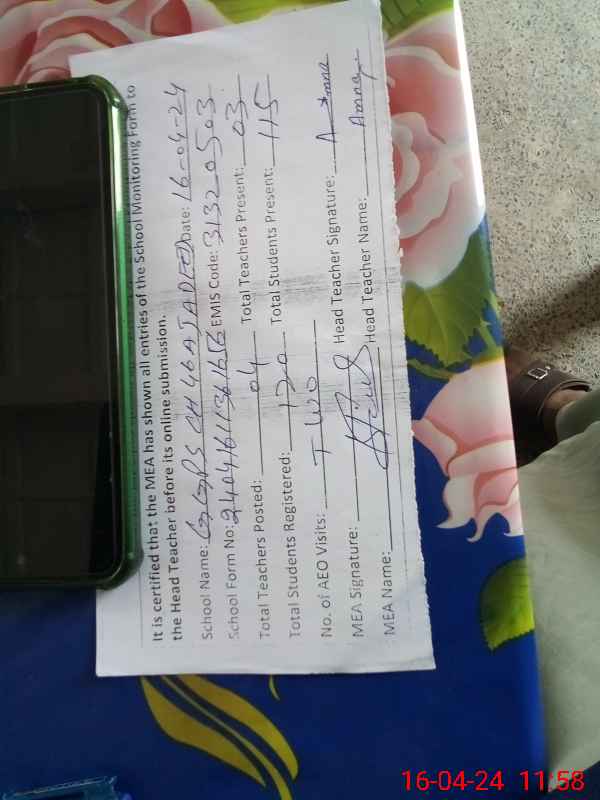 It is certified that the MEA has shown all entries of the School Monitoring Form to
the Head Teacher before its online submission.
School Name: GGPS CH 46 Date: 16-04-24
School Form No: EMIS Code: 31320503
Total Teachers Posted: 04 Total Teachers Present: 03
Total Students Registered: 120 Total Students Present: 115
No. of AEO Visits: Two
MEA Signature: Head Teacher Signature: Amna
MEA Name: Head Teacher Name: Amna
16-04-24 11:58